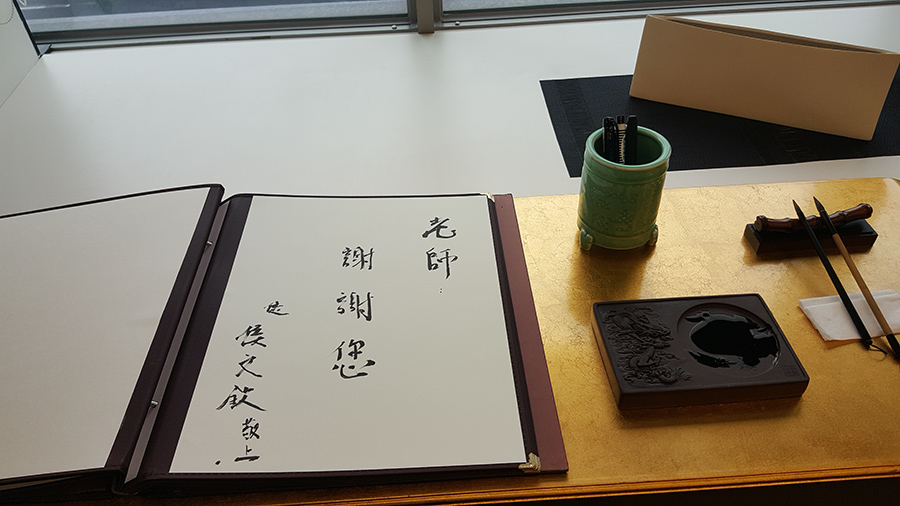 老師：
謝謝您
侯文欽敬上.